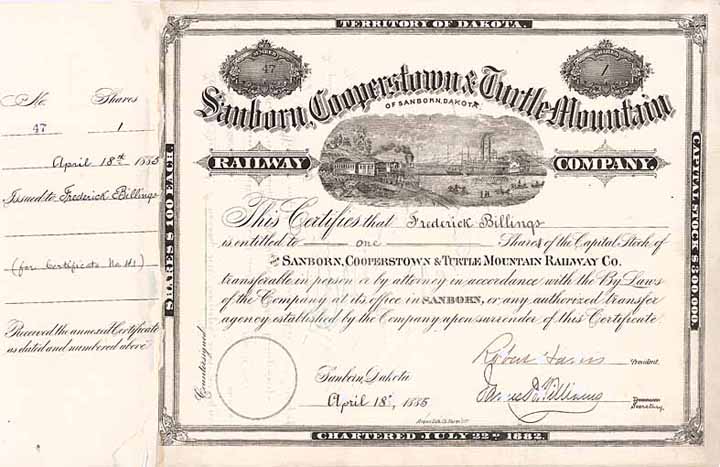 TERRITORY OF DAKOTA.
NUMBER
47
SHARES
1
Sanborn, Cooperstown & Turtle Mountain
OF SANBORN, DAKOTA
RAILWAY COMPANY.
No. Shares
47 1
April 18th 1885
Issued to Frederick Billings
(for Certificate No. 41)
Received the annexed Certificate
as dated and numbered above
SHARES $100 EACH.
CAPITAL STOCK $300,000.
This Certifies that Frederick Billings
is entitled to one Shares of the Capital Stock of
THE SANBORN, COOPERSTOWN & TURTLE MOUNTAIN RAILWAY CO.
transferable in person or by attorney in accordance with the By Laws
of the Company at its office in SANBORN, or any authorized transfer
agency established by the Company upon surrender of this Certificate
Countersigned
Sanborn, Dakota
April 18th, 1885
Robert President.
Williams
Secretary.
CHARTERED JULY 22ND 1882.